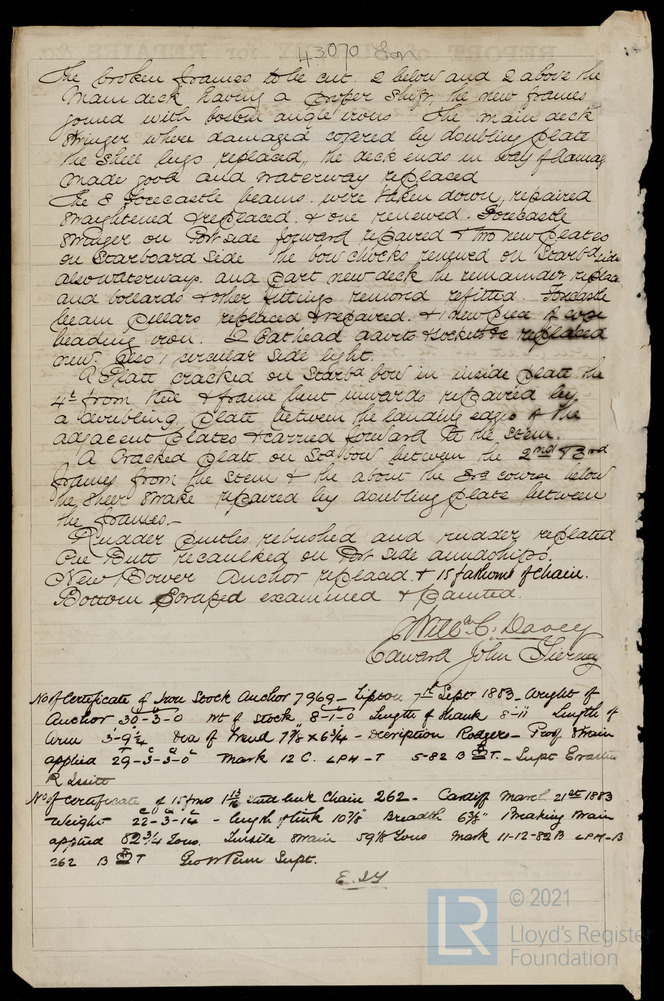 43070 Lon
The broken frames to be cut. 2 below and 2 above the
Main deck having a proper shift, the new frames
joined with bosom angle irons The main deck
Stringer where damaged covered by doubling plate
the shell lugs replaced, the deck ends in way of damage
made good and waterway replaced
The 8 forecastle beams were taken down, repaired
straightened & replaced. & one renewed. Forecastle
Stringer on Port side forward repaired & two new plates
on Starboard Side the bow chocks renewed on Starbd side
also waterways. and part new deck the remainder replaced
and bollards & other fittings removed refitted. Forecastle
beam pillars replaced & repaired. & 1 new piece of
beading iron. 2 Cathead davits & sockets &c replaced
new. also 1 circular side light.
A Plate cracked on Starbd bow in inside plate the
4th from Keel & frame bent inwards repaired by
a doubling plate between the landing edges of the
adjacent plates & carried forward to the stem.
A Cracked plate on Stabd bow between the 2nd & 3rd
frames from the stem & the about the 3rd course below
the sheer strake repaired by doubling plate between
the frames.—
Rudder pintles rebushed and rudder replaced
One Butt recaulked on Port side amidships.
New Bower Anchor replaced & 15 fathoms of chain.
Bottom Scraped examined & painted.
Willm C. Davey
Edward John Tierney
No of Certificate of Iron Stock Anchor 7969 – Tipton 7th Septr 1883 – Weight of
Anchor 30-3-0 wt of stock 8-1-0 Length of Shank 8-11 Length of
arm 3-9½ Dia of Trend 7⅞ x 6¾ – Description Rodgers – Proof Strain
applied 29-3-3-0 Mark 12 C. LPH-T 5-82 B T. – Supt
No of Certificate of 15 fms 1 13/16 Stud link Chain 262 – Cardiff March 21st 1883
Weight 22-3-14 – length of link 10⅞ Breadth 6⅜ Breaking strain
applied 82¾ Tons. Tensile strain 59⅛ Tons Mark 11-12-82 B LPH-B
262 B T Geo W Penn Supt.
© 2021
LR
Lloyd's Register
Foundation